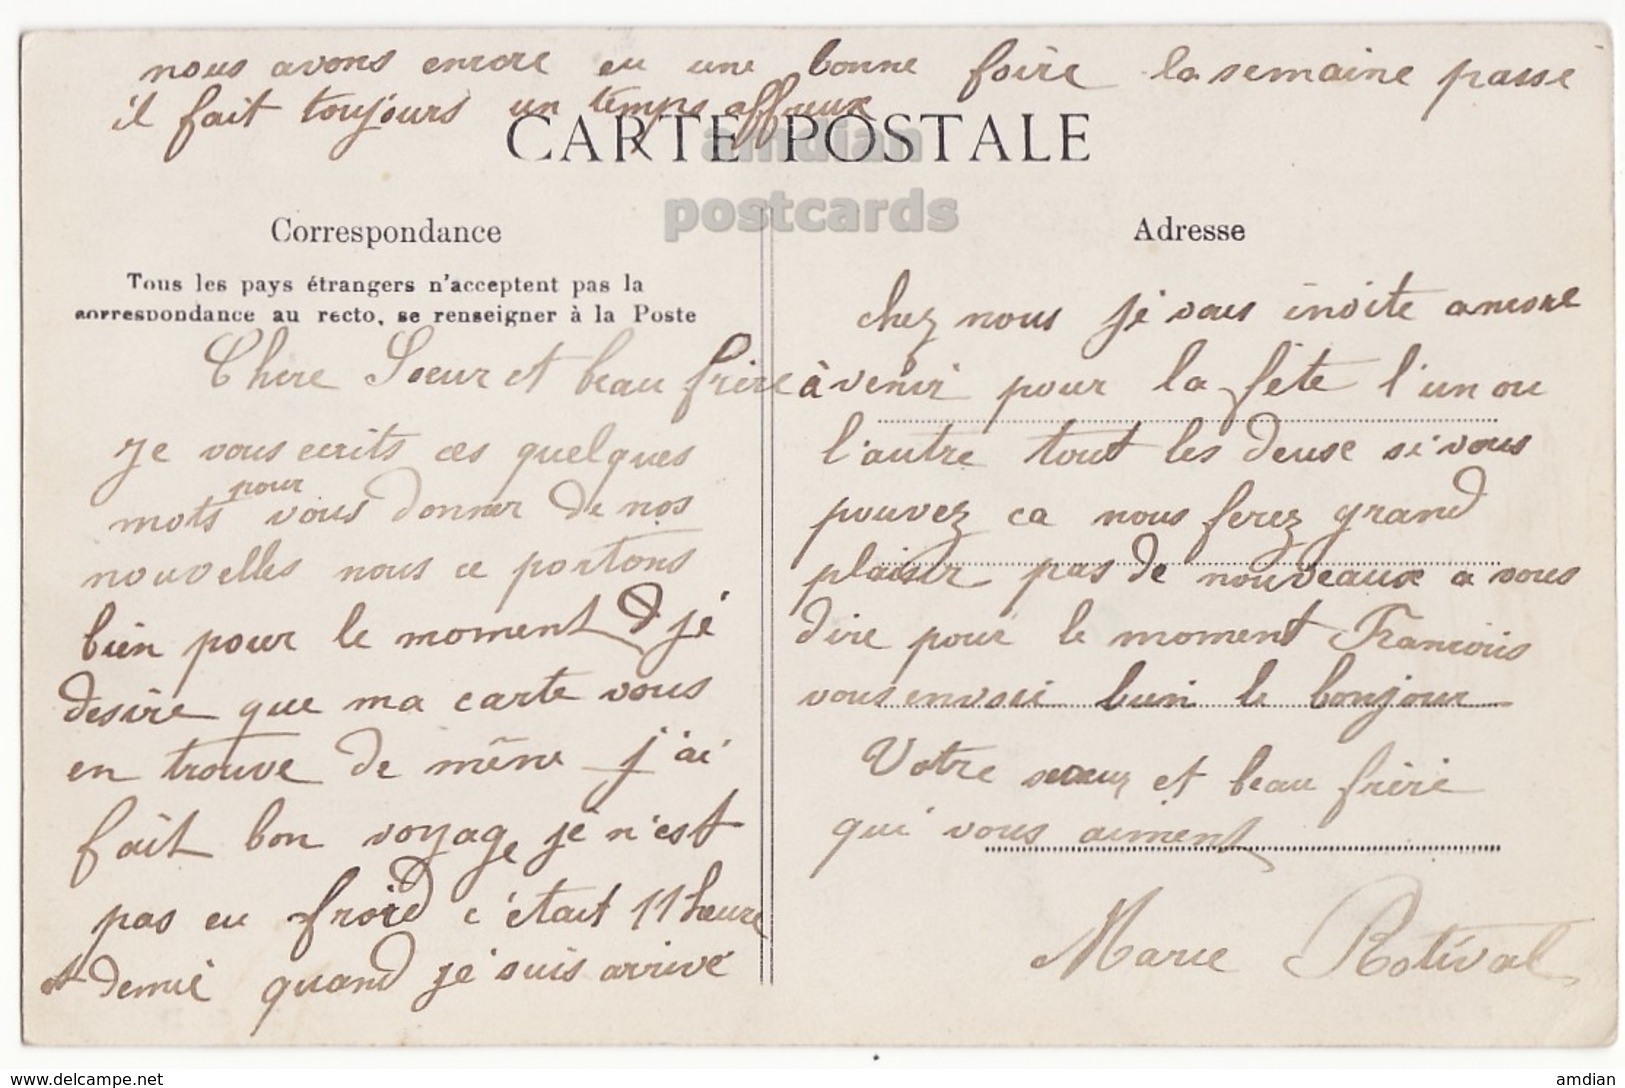 nous avons encore eu une bonne foire la semaine passe
il fait toujours un temps affreux
CARTE POSTALE
amdian
postcards
Correspondance
Tous les pays étrangers n'acceptent pas la
correspondance au recto, se renseigner à la Poste
Chere Soeur et beau frère
Je vous ecrits ces quelques
pour
mots vous donner de nos
nouvelles nous ce portons
bien pour le moment je
desire que ma carte vous
en trouve de même j'ai
fait bon voyage je n'est
pas eu froid c'était 11 heure
et demie quand je suis arrivé
Adresse
chez nous je vous invite ancore
à venir pour la fête l'un ou
l'autre tout les deuse si vous
pouvez ca nous ferez grand
plaisir pas de nouveaux a vous
dire pour le moment Francois
vous envoei bien le bonjour
Votre soeur et beau frère
qui vous aiment
Marie Rotival
www.delcampe.net
amdian